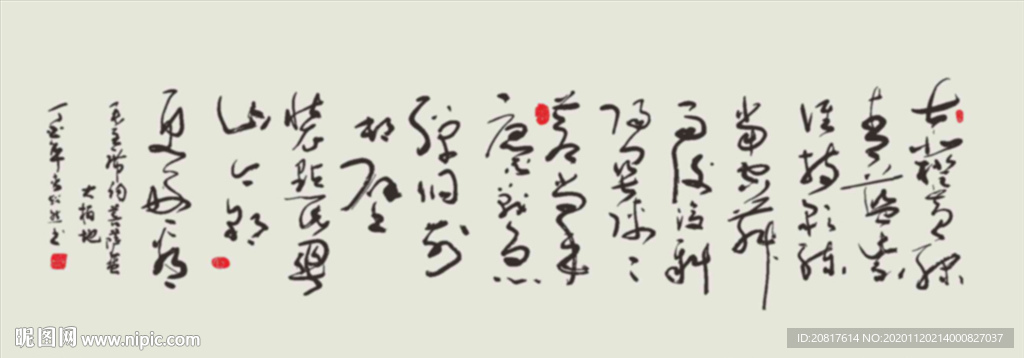 赤橙黄绿
青蓝紫
谁持彩练
當空舞
雨後復斜
阳関山阵々
苍當年
鏖战急
弹洞前
村壁
装點此関
山今朝
更好看
毛主席词菩萨蛮
大柏地
昵图网 www.nipic.com
ID:20817614 NO:20201120214000827037